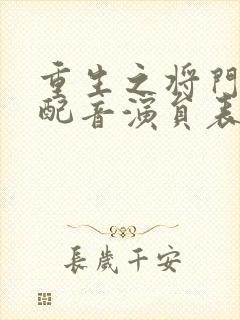 重生之将門
配音演員表
長歲千安